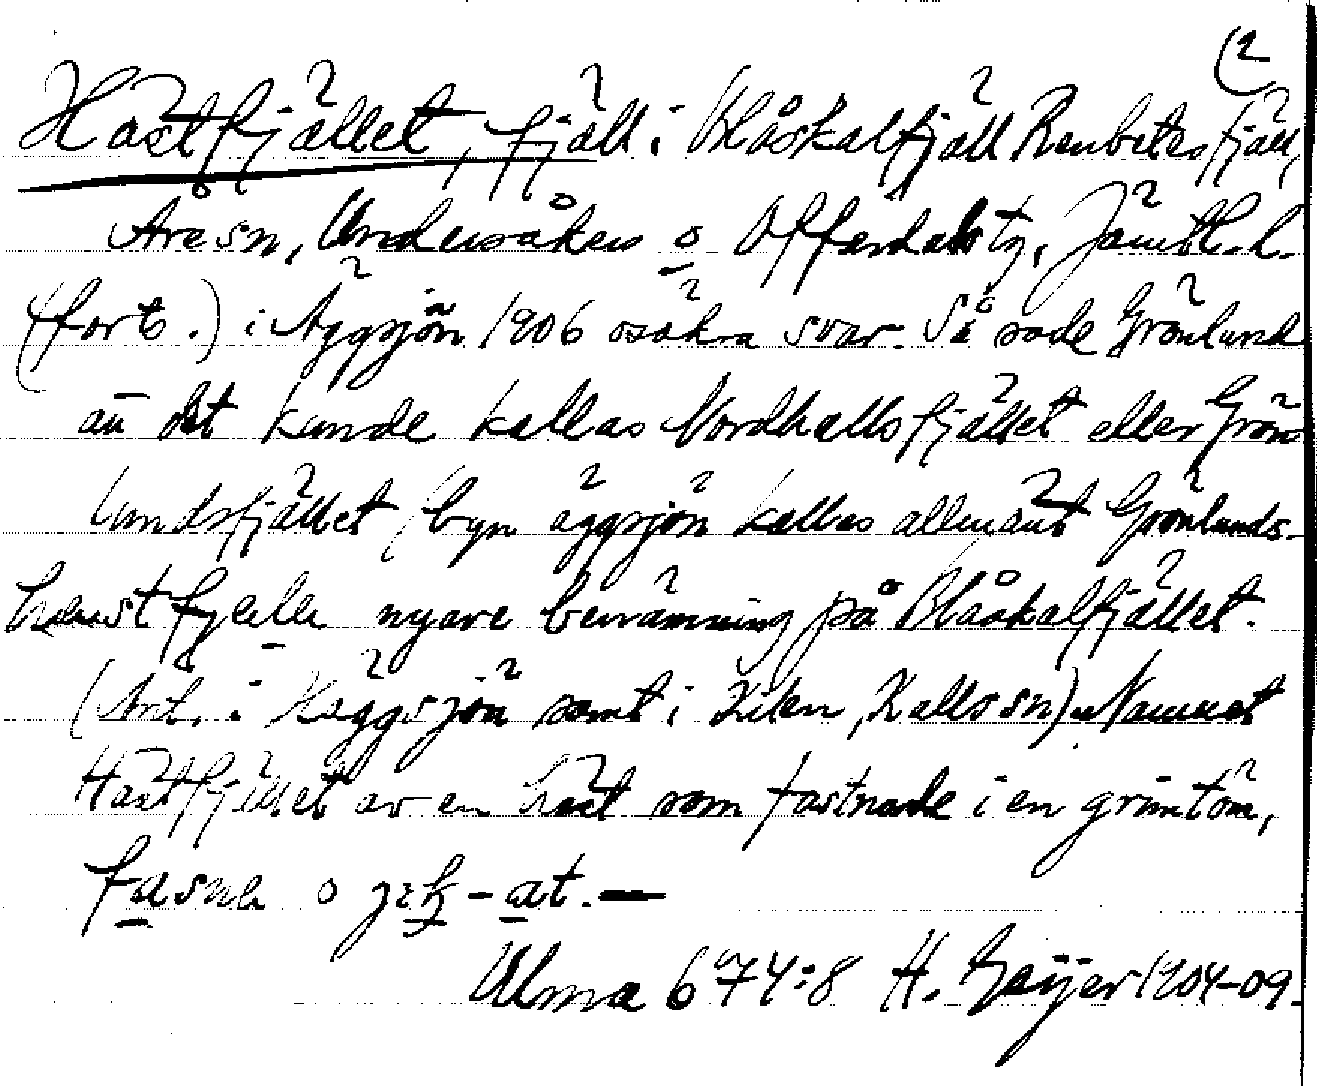 (2
Hästfjället, fjäll i Blåskalfjäll Renbetesfjäll,
Åre sn, Undersåkers o Offerdals tg, Jämtl. l.
(forts.) i Äggsjön 1906 osäkra svar. Så sade Grönlund
att det kunde kallas Nordhallsfjället eller Grön
lundsfjället (byn Äggsjön kallas allmänt Grönlunds.
nyare benämning på Blåskalfjället.
(Ant. i Häggsjön samt i Kallssn). Namnet
Hästfjället av en häst som fastnade i en grimtöm,
fasna o -at. —
Ulma 674:8 H. Geijer 1904-09.